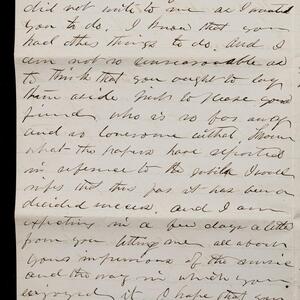 did not write to me as I wanted
you to do. I know that you
had other things to do. and I
am not so unreasonable as
to think that you ought to lay
them aside just to please your
friend who is so far away
and so lonesome withal. From
what the papers have reported
in reference to the jubilee I would
infer that thus far it has been a
decided success. and I am
expecting in a few days a letter
from you telling me all about
your impressions of the music
and the way in which you
enjoyed it. I hope that you